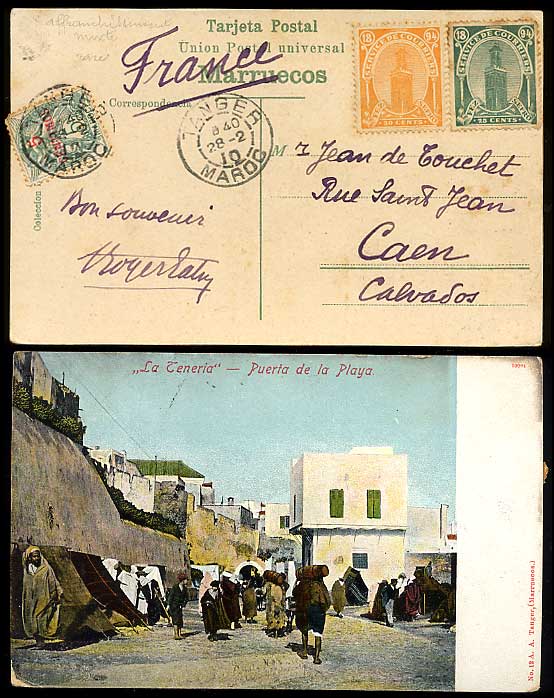 affranchissement
mixte
rare
Tarjeta Postal
Union Postal universal
Marruecos
France
Correspondencia
TANGER
8 40
28-2
10
MAROC
18 94
SERVICE DE COURRIERS
50 CENTS
18 94
SERVICE DE COURRIERS
25 CENTS
M r Jean de Touchet
Rue Saint Jean
Caen
Calvados
Bon souvenir
Coleccion
„La Teneria“ — Puerta de la Playa.
No. 12 A. A. Tanger, (Marruecos.)